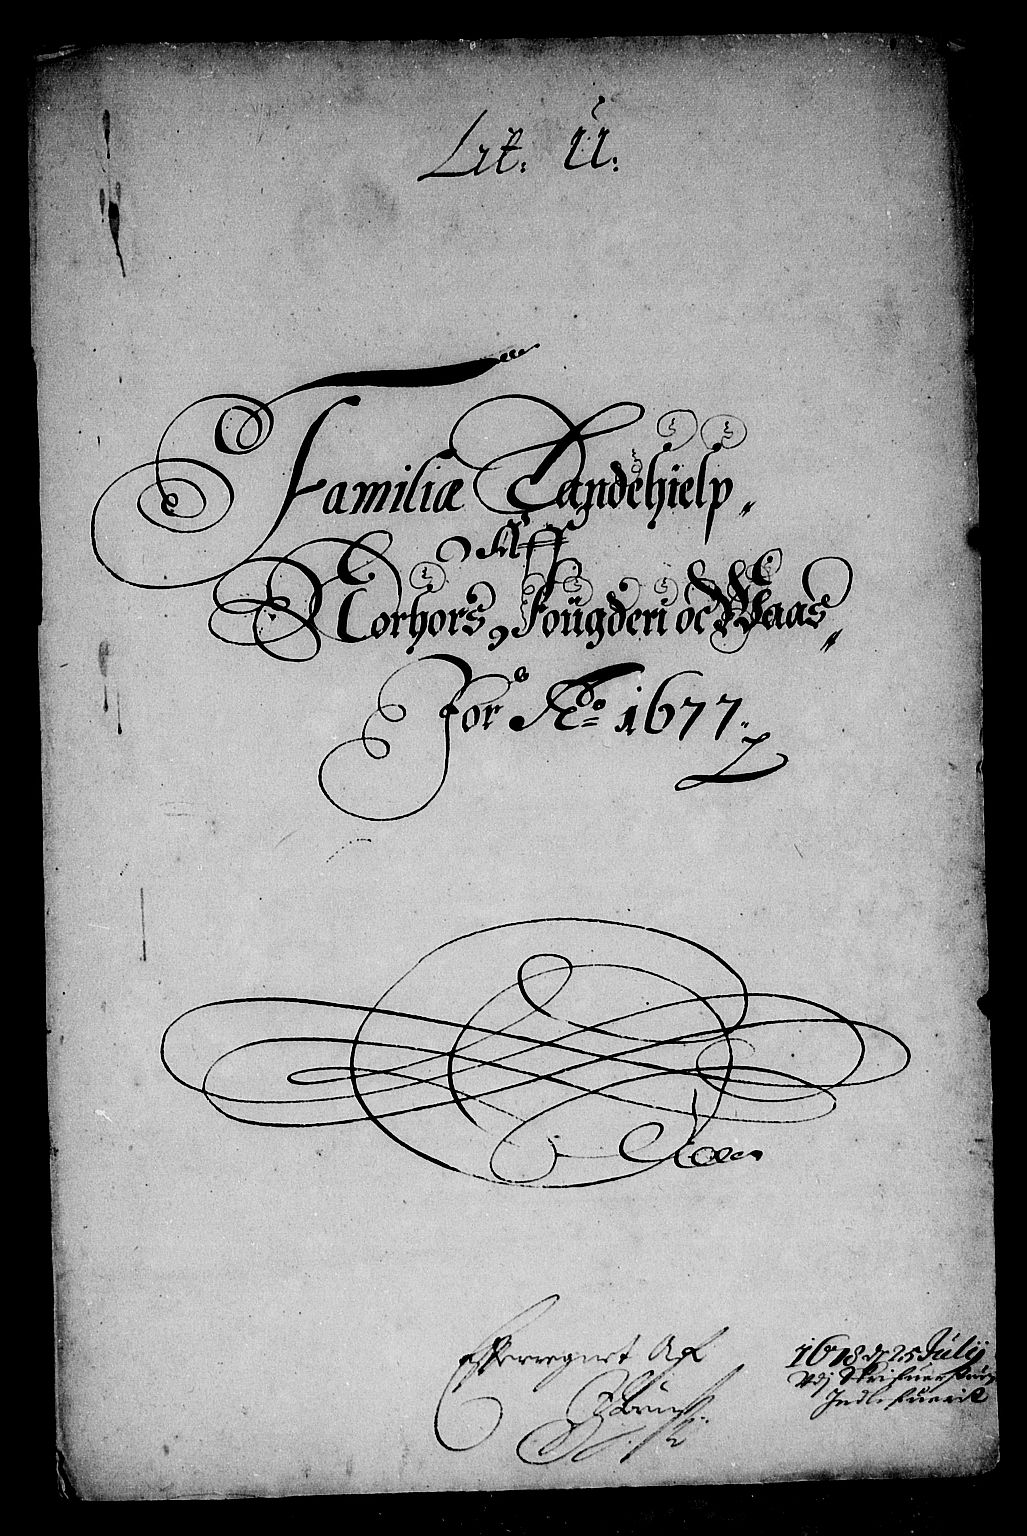 Lit: Ü.
Familiæ Landehielp„
Aff
Norhors Fougderi oc Waas„
For Ao= 1677.
Effterregnet Af
1678 d 25 Julij